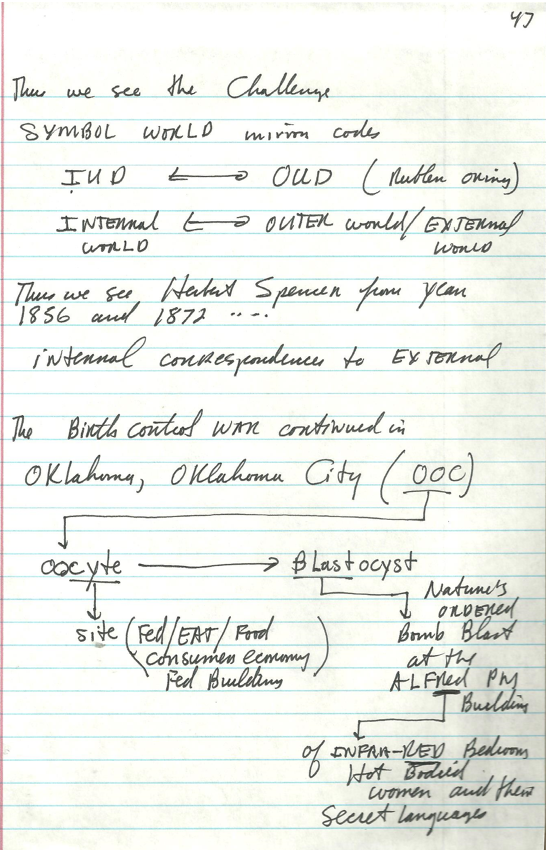 47
Thus we see the Challenge
SYMBOL WORLD mirror codes
IUD ⟷ OUD (Rubber oring)
INTERNAL ⟷ OUTER world/EXTERNAL
WORLD WORLD
Thus we see Herbert Spencer from year
1856 and 1872 .....
internal correspondences to EXTERNAL
The Birth control WAR continued in
OKlahoma, OKlahoma City (OOC)
oocyte → BLastocyst
Nature's
ORDERED
site (Fed/EAT/Food Bomb Blast
consumer economy at the
Fed Building) ALFRed
Building
of INFRA-RED Bedroom
Hot Bodied
women and their
Secret languages